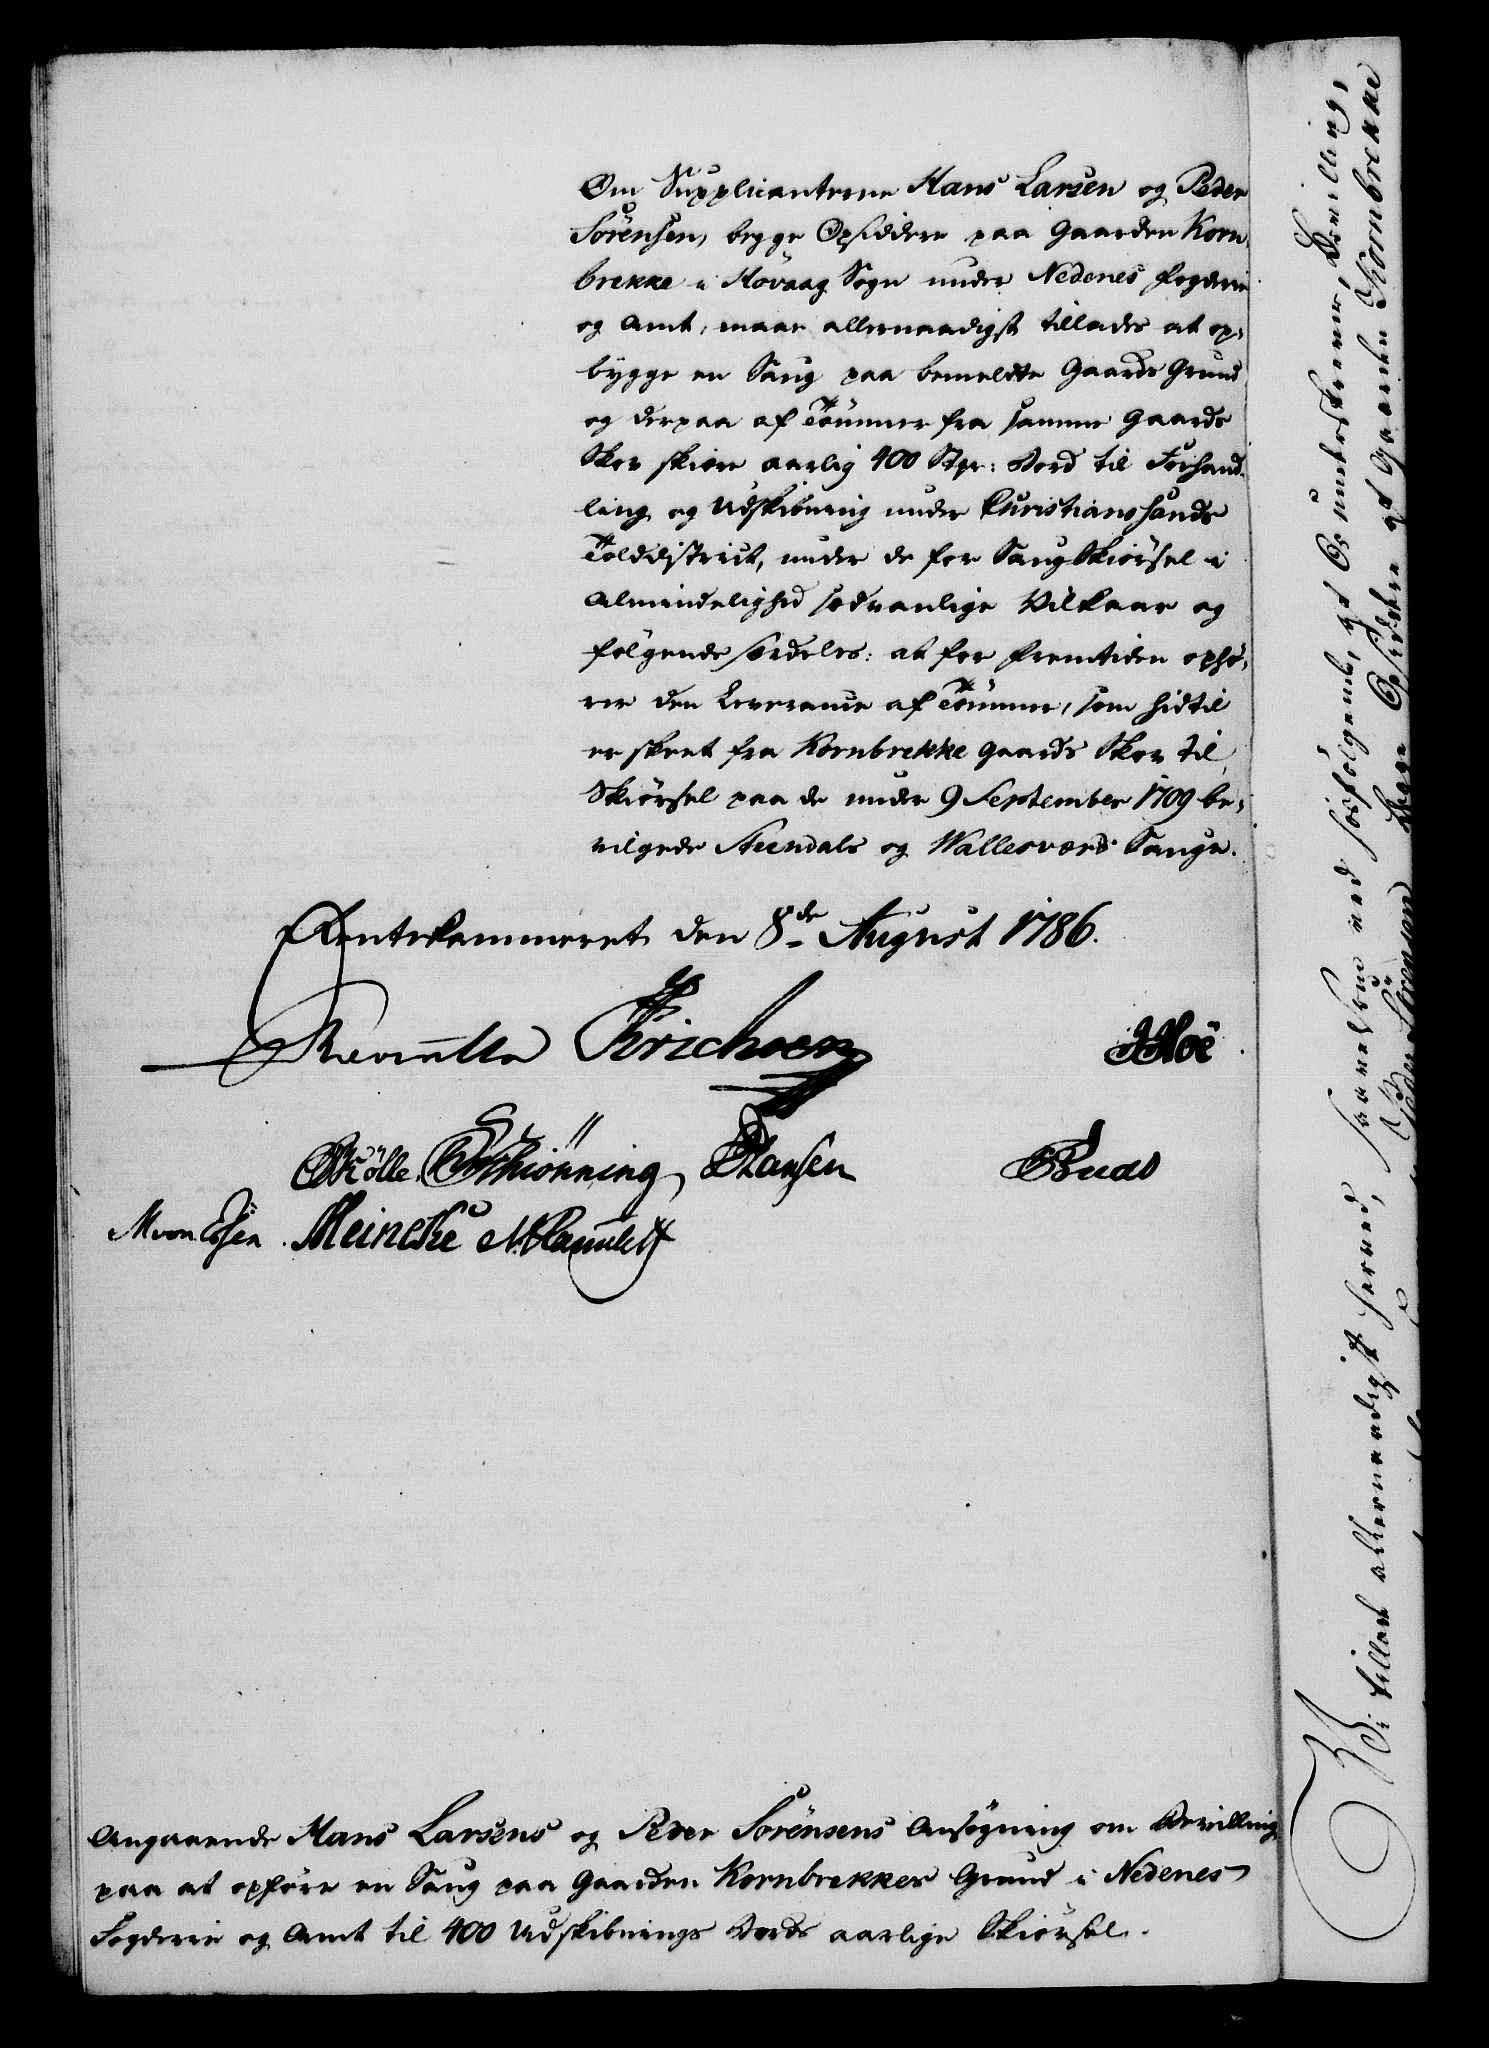 Om Supplicanterne Hans Larsen og Peder
Sörensen, begge Opsiddere paa Gaarden Korn-
brekke i Hövaag Sogn under Nedenes Fogderie
og Amt, maae allernaadigst tillades at op-
bygge en Saug paa bemeldte Gaards Grund
og derpaa af Tömmer fra samme Gaards
Skov skiære aarlig 400 Styk: Bord til Forhand-
ling og Udskibning under Christianssands
Tolddistrict, under de for SaugSkiörsel i
Almindelighed sædvanlige Vilkaar og
fölgende særdeles: at for Fremtiden ophö-
rer den Leverance af Tömmer, som hidtil
er skeet fra Kornbrekke Gaards Skov til
Skiörsel paa de under 9 September 1709 be-
vilgede Steendals og Wallesværds Sauge.
Rentekammeret den 8de August 1786.
Reventlow Erichsen
Mölle Schiönning Hansen
M von Essen Meincke
Angaaende Hans Larsens og Peder Sörensens Ansögning om Bevilling
paa at opföre en Saug paa Gaarden Kornbrekkes Grund i Nedenes
Fogderie og Amt til 400 Udskibnings Bords aarlige Skiörsel.
Vi tillade allernaadigst herved, saavelsom ved hosfölgende, af Os underskrevne Bevilling,
Peder Sörensen, begge Opsiddere af Gaarden Kornbrekke